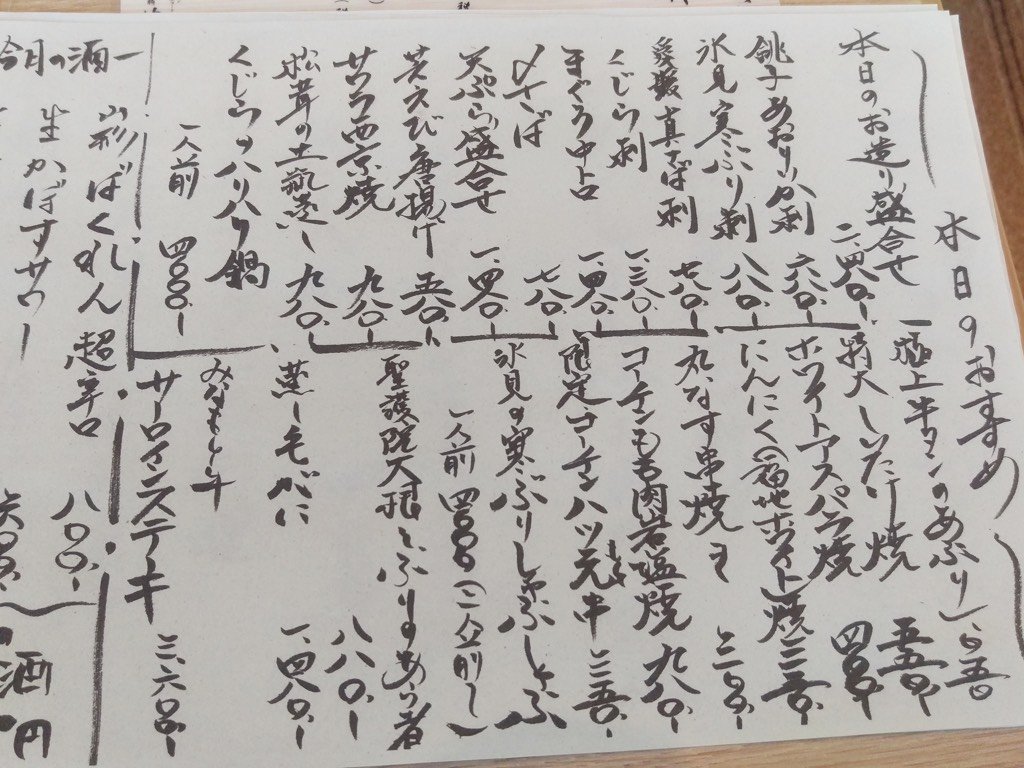 本日のおすすめ
本日のお造り盛合せ 二、四八〇.-
銚子あおりいか刺 六八〇.-
氷見寒ぶり刺 八八〇.-
愛媛真そば刺 七八〇.-
くじら刺 一、三八〇.-
まぐろ中トロ 一、四八〇.-
〆さば 七八〇.-
天ぷら盛合せ 一、四八〇.-
芝えび唐揚げ 五八〇.-
サワラ西京焼 九八〇.-
松茸の土瓶蒸し 九八〇.-
くじらのハリハリ鍋
一人前 四〇〇〇.-
極上牛タンのあぶり
特大しいたけ焼 五五〇.-
ホワイトアスパラ焼 四八〇.-
にんにく(福地ホワイト)焼 三三〇.-
丸なす串焼
コーチンもも肉岩塩焼 九八〇.-
限定コーチンハツ元串 三五〇.-
氷見の寒ぶりしゃぶしゃぶ
一人前 四〇〇〇(二人前〜)
聖護院大根とぶりのあら煮
八八〇.-
蒸し毛がに 一、四八〇.-
みなもと牛
サーロインステーキ 三、六〇〇.-
今月の酒
ばくれん 超辛口 八〇〇.-
生かぼすサワー
酒